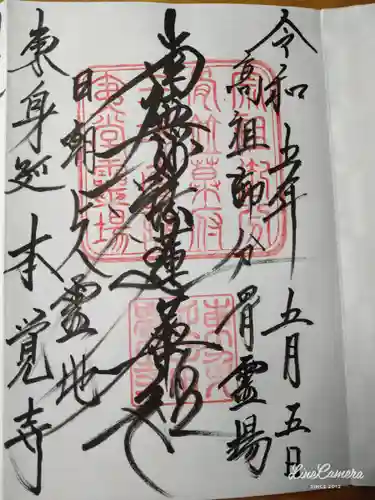 令和五年五月五日
高祖師分骨霊場
南無妙法蓮華経
日朝上人霊地
東身延 本覚寺
LineCamera
SINCE 2012